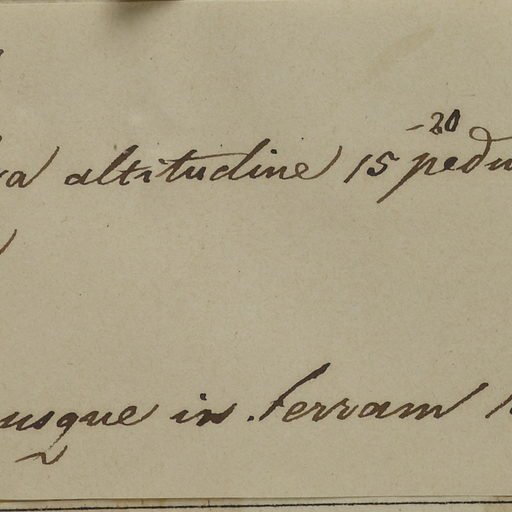 -20
altitudine 15 pedu
usque in terram